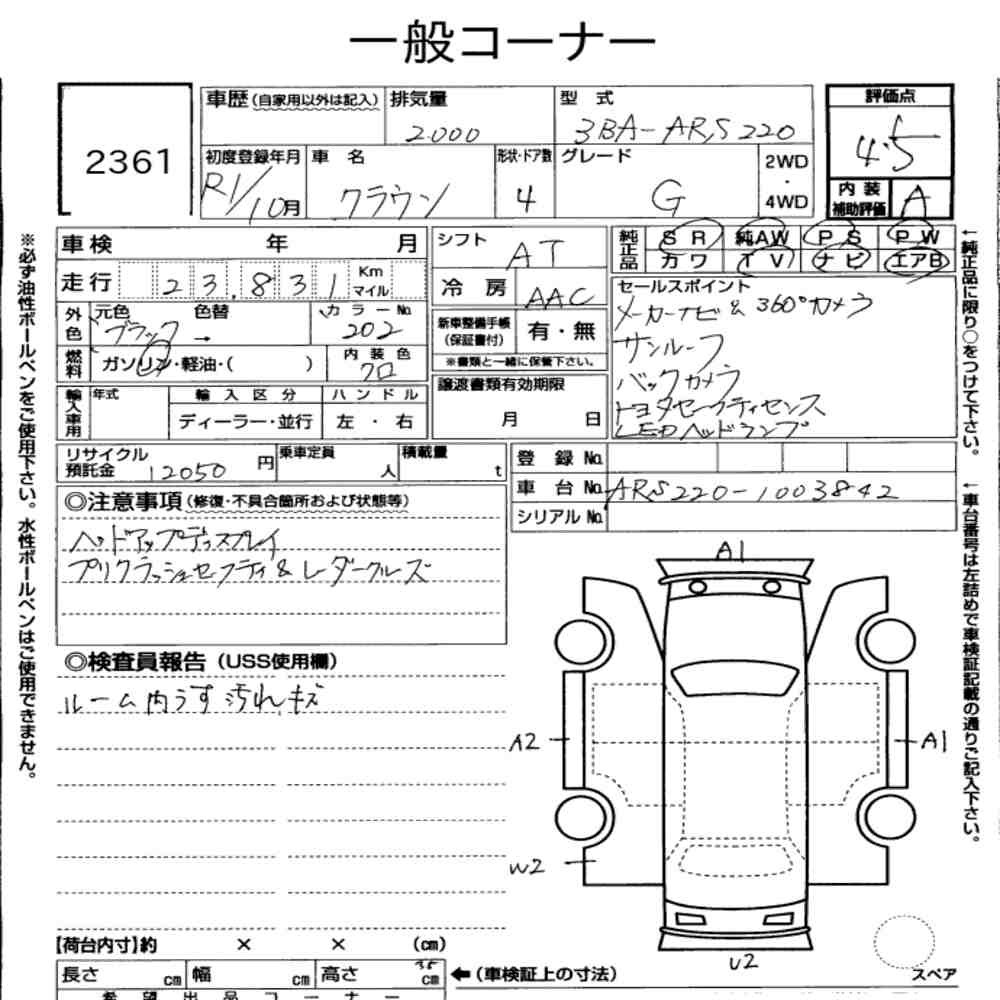 一般コーナー
2361
車歴(自家用以外は記入)
排気量
2000
型式
3BA-ARS220
評価点
4.5
初度登録年月
R1/10月
車名
クラウン
形状・ドア数
4
グレード
G
2WD
・
4WD
内装
補助評価
A
車検 年 月
走行 23,831 Km
マイル
外色
元色
ブラック
→
色替
カラーNo.
202
燃料
ガソリン・軽油・( )
内装色
クロ
輸入車用
年式
輸入区分
ディーラー・並行
ハンドル
左・右
シフト
AT
冷房
AAC
新車整備手帳
(保証書付)
有・無
※書類と一緒に保管下さい。
譲渡書類有効期限
月 日
純正品
SR 純AW PS PW
カワ TV ナビ エアB
セールスポイント
メーカーナビ & 360°カメラ
サンルーフ
バックカメラ
トヨタセーフティセンス
LEDヘッドランプ
リサイクル
預託金
12050円
乗車定員
人
積載量
t
登録No.
車台No. ARS220-1003842
シリアルNo.
◎注意事項(修復・不具合箇所および状態等)
ヘッドアップディスプレイ
プリクラッシュセーフティ & レーダークルーズ
◎検査員報告(USS使用欄)
ルーム内うす汚れ、キズ
A1
A2
A1
W2
U2
スペア
【荷台内寸】約 × × (cm)
長さ cm 幅 cm 高さ cm
←(車検証上の寸法)
希望出品コーナー
※必ず油性ボールペンをご使用下さい。水性ボールペンはご使用できません。
←純正品に限り○をつけて下さい。
←車台番号は左詰めで車検証記載の通りご記入下さい。